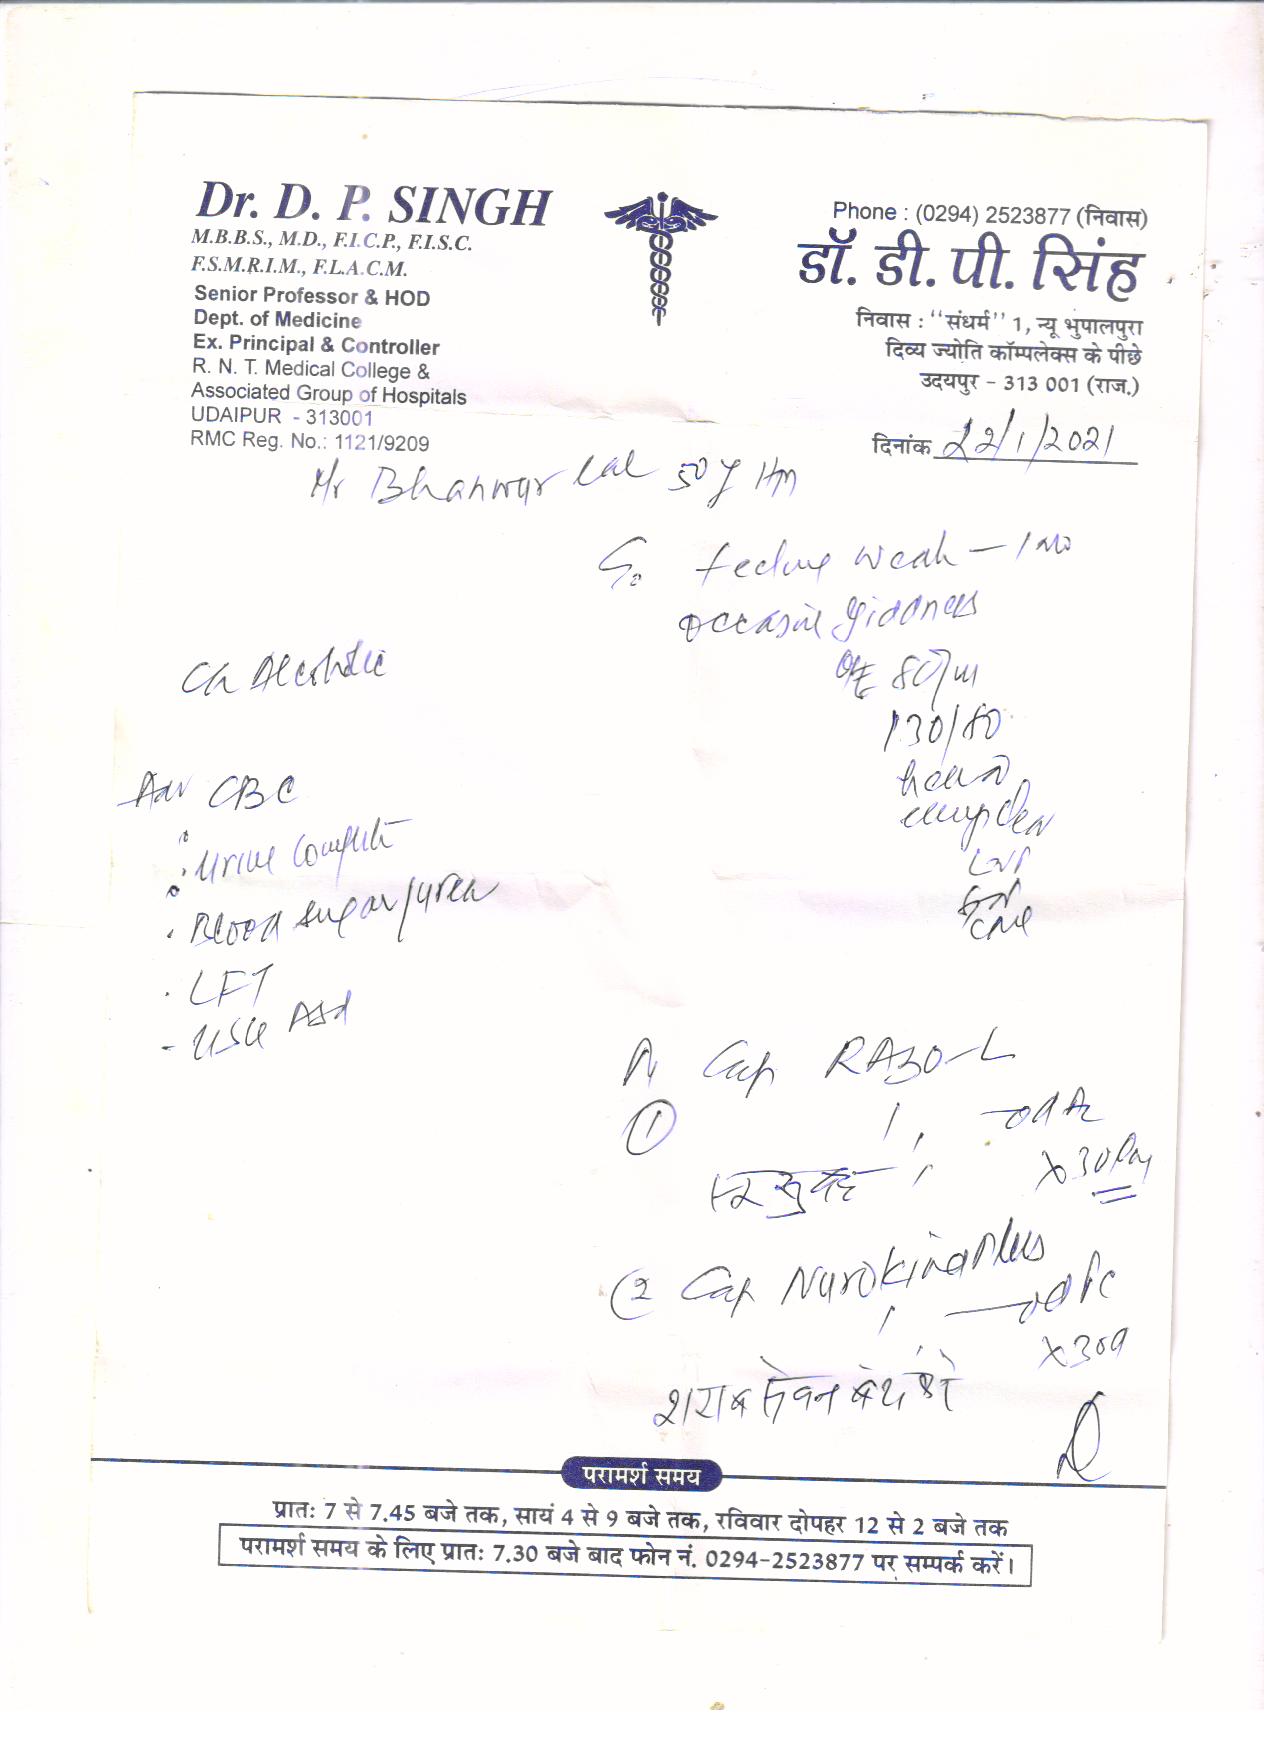 Dr. D. P. SINGH
M.B.B.S., M.D., F.I.C.P., F.I.S.C.
F.S.M.R.I.M., F.L.A.C.M.
Senior Professor & HOD
Dept. of Medicine
Ex. Principal & Controller
R. N. T. Medical College &
Associated Group of Hospitals
UDAIPUR - 313001
RMC Reg. No.: 1121/9209
Phone : (0294) 2523877 (निवास)
डॉ. डी. पी. सिंह
निवास : "संधर्म" 1, न्यू भुपालपुरा
दिव्य ज्योति कॉम्पलेक्स के पीछे
उदयपुर - 313 001 (राज.)
दिनांक 22/1/2021
Mr Bhanwar Lal 50 y
feeling weak - 1 mo
giddness
Ch Alcoholic
O/E 80/m
130/80
Adv CBC
Urine Complete
Blood sugar/urea
LFT
USG Abd
Cap RAZO-L
① 1 od
x 30 Day
② Cap Nurokind Plus
1 od
x 30d
शराब सेवन बंद करे
परामर्श समय
प्रातः 7 से 7.45 बजे तक, सायं 4 से 9 बजे तक, रविवार दोपहर 12 से 2 बजे तक
परामर्श समय के लिए प्रातः 7.30 बजे बाद फोन नं. 0294-2523877 पर सम्पर्क करें।